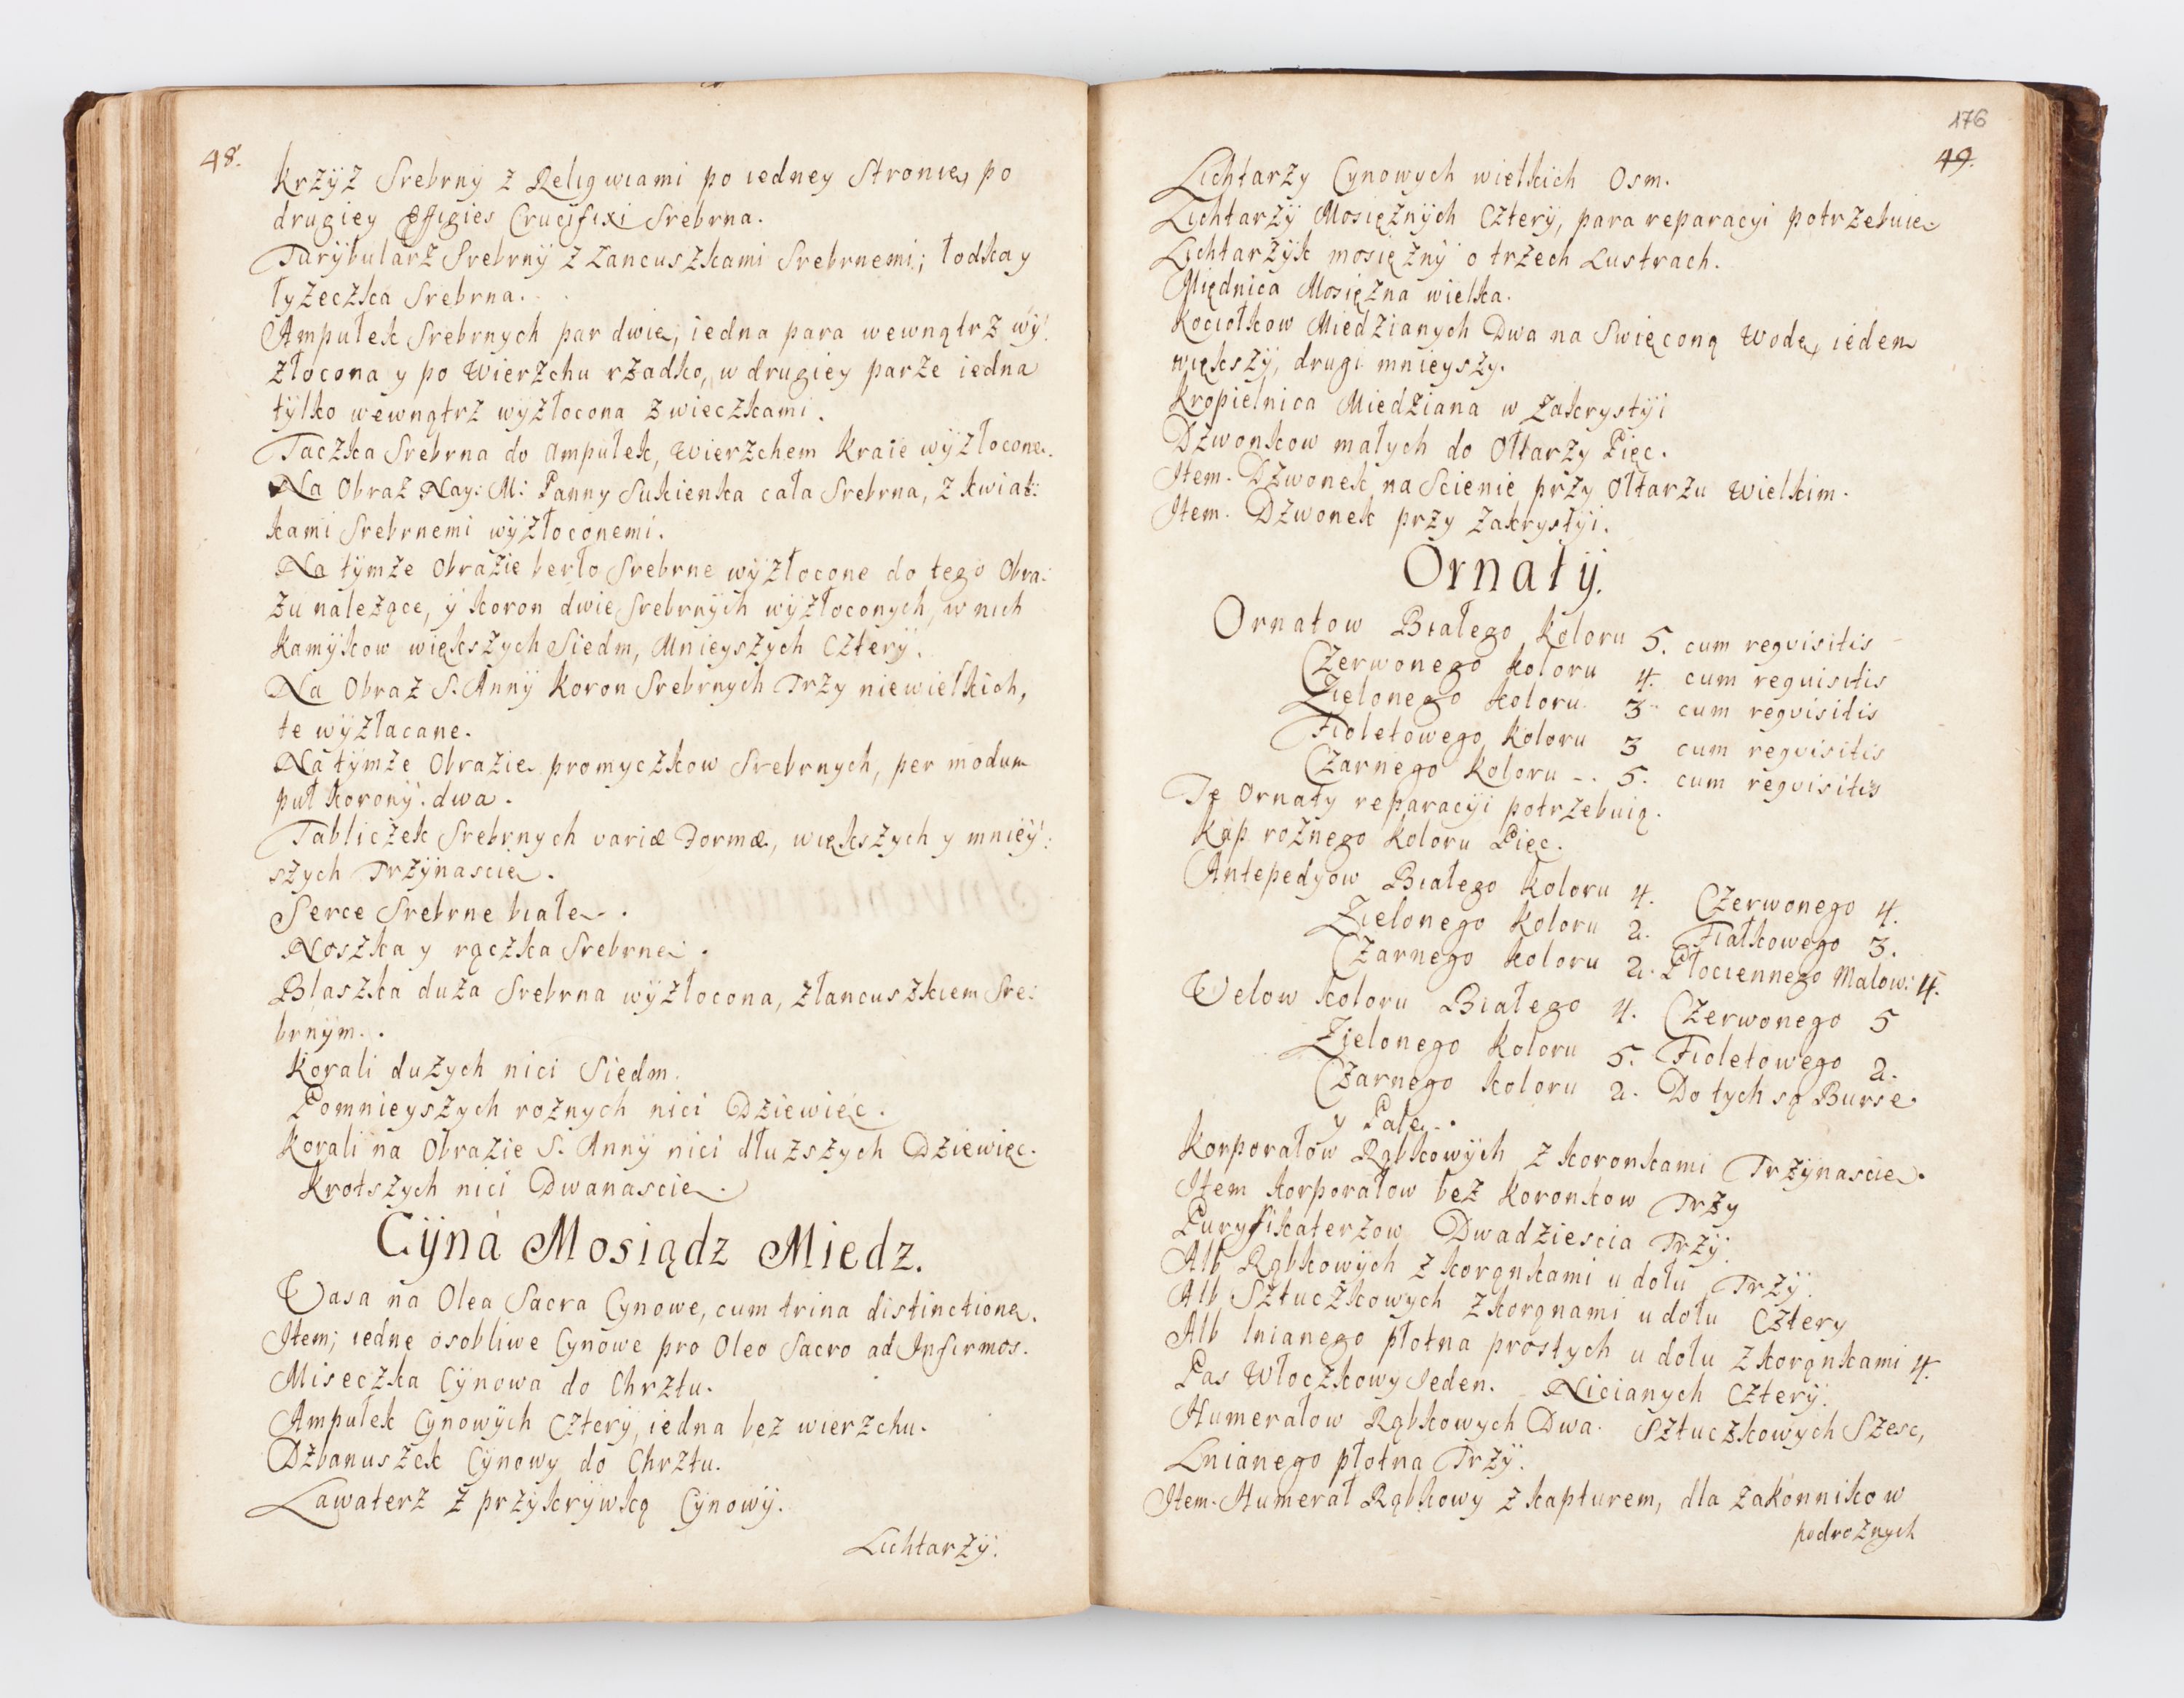 48.
Krzÿż Srebrnÿ z Religwiami po iedney Stronie, po
drugiey Effigies Crucifixi Srebrna.
Turÿbularz Srebrnÿ z Łancuszkami Srebrnemi; łodka y
łyżeczka Srebrna.
Ampułek Srebrnych par dwie, iedna para wewnątrz wÿ:
złocona y po Wierzchu rzadko, w drugiey parze iedna
tÿlko wewnątrz wyzłocona z wieczkami.
Taczka Srebrna do ampułek, Wierzchem kraie wÿzłocone.
Na Obraz Nay: M: Panny Sukienka cała Srebrna, z kwiat:
kami Srebrnemi wÿzłoconemi.
Na tÿmże Obrazie berło Srebrne wÿzłocone do tego Obra:
zu należące, ÿ koron dwie Srebrnÿch wÿzłoconych, w nich
kamÿkow większych Siedm, Mnieyszÿch Czterÿ.
Na Obraz S. Annÿ Koron Srebrnych Trzy niewielkich,
te wÿzłacane.
Na tÿmże Obrazie promyczkow Srebrnych, per modum
puł korony dwa.
Tabliczek Srebrnych variæ Formæ, większych y mniey:
szych Trzÿnascie.
Serce Srebrne białe.
Noszka y rączka Srebrne.
Blaszka duża Srebrna wÿzłocona, z łancuszkiem Sre:
brnÿm.
Korali dużych nici Siedm.
Pomnieyszych rożnych nici Dziewięc.
Korali na Obrazie S. Annÿ nici dłuższych Dziewięc.
Krotszych nici Dwanascie.
Cÿna Mosiądz Miedz.
Vasa na Olea Sacra Cynowe, cum trina distinctione.
Item; iedne osobliwe Cynowe pro Oleo Sacro ad Infirmos.
Miseczka Cÿnowa do Chrztu.
Ampułek Cynowÿch Czterÿ, iedna bez wierzchu.
Dzbanuszek Cÿnowy do Chrztu.
Lawaterz z przÿkrÿwką Cynowÿ.
Lichtarzÿ.
176
49.
Lichtarzy Cynowych wielkich Osm.
Lichtarzÿ Mosiężnÿch Czterÿ, para reparacyi potrzebuie
Lichtarzÿk mosiężnÿ o trzech Lustrach.
Miednica Mosiężna wielka.
Kociołkow Miedzianych Dwa na Swięconą Wodę, ieden
większÿ, drugi mnieyszy.
Kropielnica Miedziana w Zakrystÿi
Dzwonkow małych do Ołtarzy Pięc.
Item. Dzwonek na Scienie przy Ołtarzu Wielkim.
Item. Dzwonek przy Zakrystÿi.
Ornatÿ.
Ornatow Białego Koloru 5. cum reqvisitis
Czerwonego koloru 4. cum requisitis
Zielonego koloru 3 cum reqvisitis
Fioletowego koloru 3 cum reqvisitis
Czarnego koloru -. 5. cum reqvisitis
Te Ornaty reparacÿi potrzebuią.
Kap rożnego koloru Pięc.
Antepedyow Białego koloru 4. Czerwonego 4.
Zielonego koloru 2. Fiałkowego 3.
Czarnego koloru 2. Płociennego Malow: 4.
Velow koloru Białego 4. Czerwonego 5
Zielonego koloru 5. Fioletowego 2.
Czarnego koloru 2. Do tych są Burse
y Palle.
Korporałow Rąbkowÿch z koronkami Trzÿnascie.
Item korporałow bez Koronkow Trzy
Puryfikaterzow Dwadziescia Trzÿ.
Alb Rąbkowÿch z korąnkami u dołu Trzÿ.
Alb Sztuczkowych z korąnami u dołu Cztery
Alb lnianego płotna prostych u dołu z korąnkami 4.
Pas Włoczkowy Ieden. Nicianych Czterÿ.
Humerałow Rąbkowych Dwa. Sztuczkowych Szesc,
Lnianego płotna Trzÿ.
Item. Humerał Rąbkowy z kapturem, dla zakonnikow
podrożnych